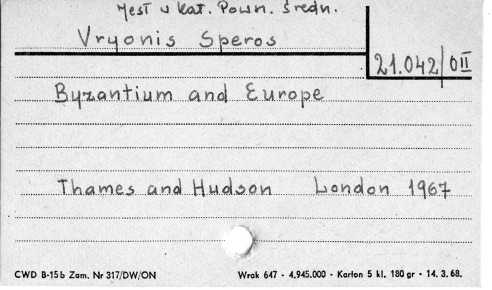 Jest w kat. Pown. Średn.
Vryonis Speros
21.042/OII
Byzantium and Europe
Thames and Hudson London 1967
CWD B-15b Zam. Nr 317/DW/ON Wrak 647 - 4,945.000 - Karton 5 kl. 180 gr - 14. 3. 68.